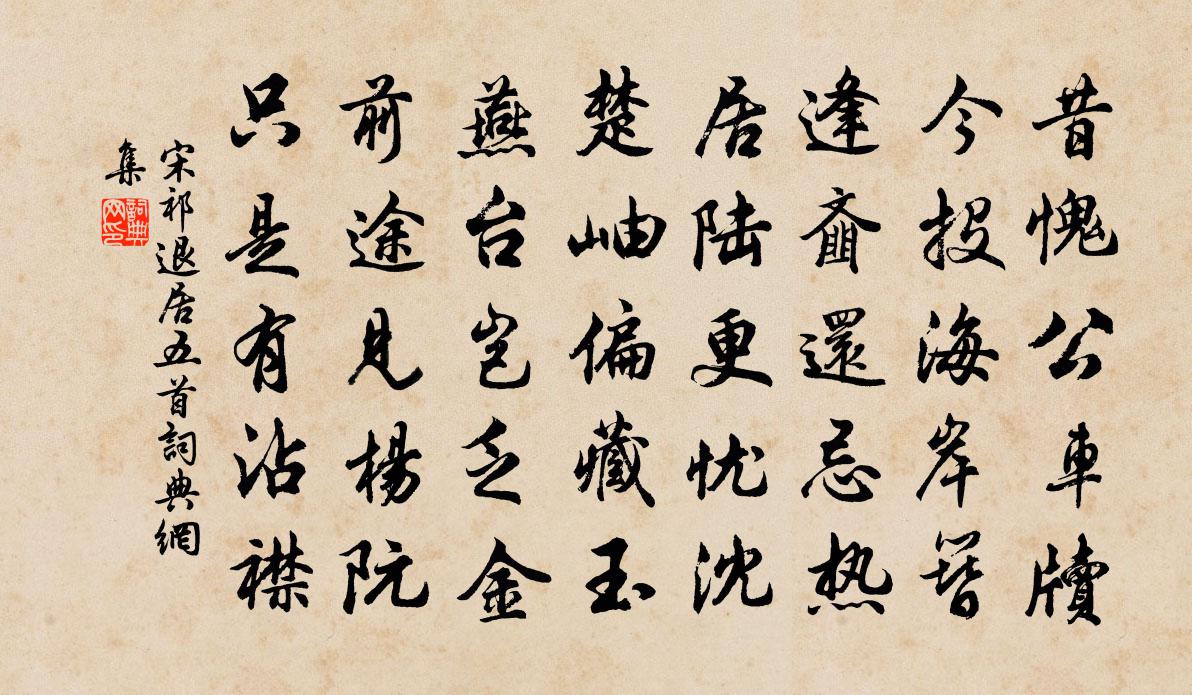 昔愧公車牘
今投海岸簪
逢齑還忌热
居陆更忧沈
楚岫偏藏玉
燕台岂乏金
前途見楊阮
只是有沾襟
宋祁退居五首詞典網
集
詞典網印